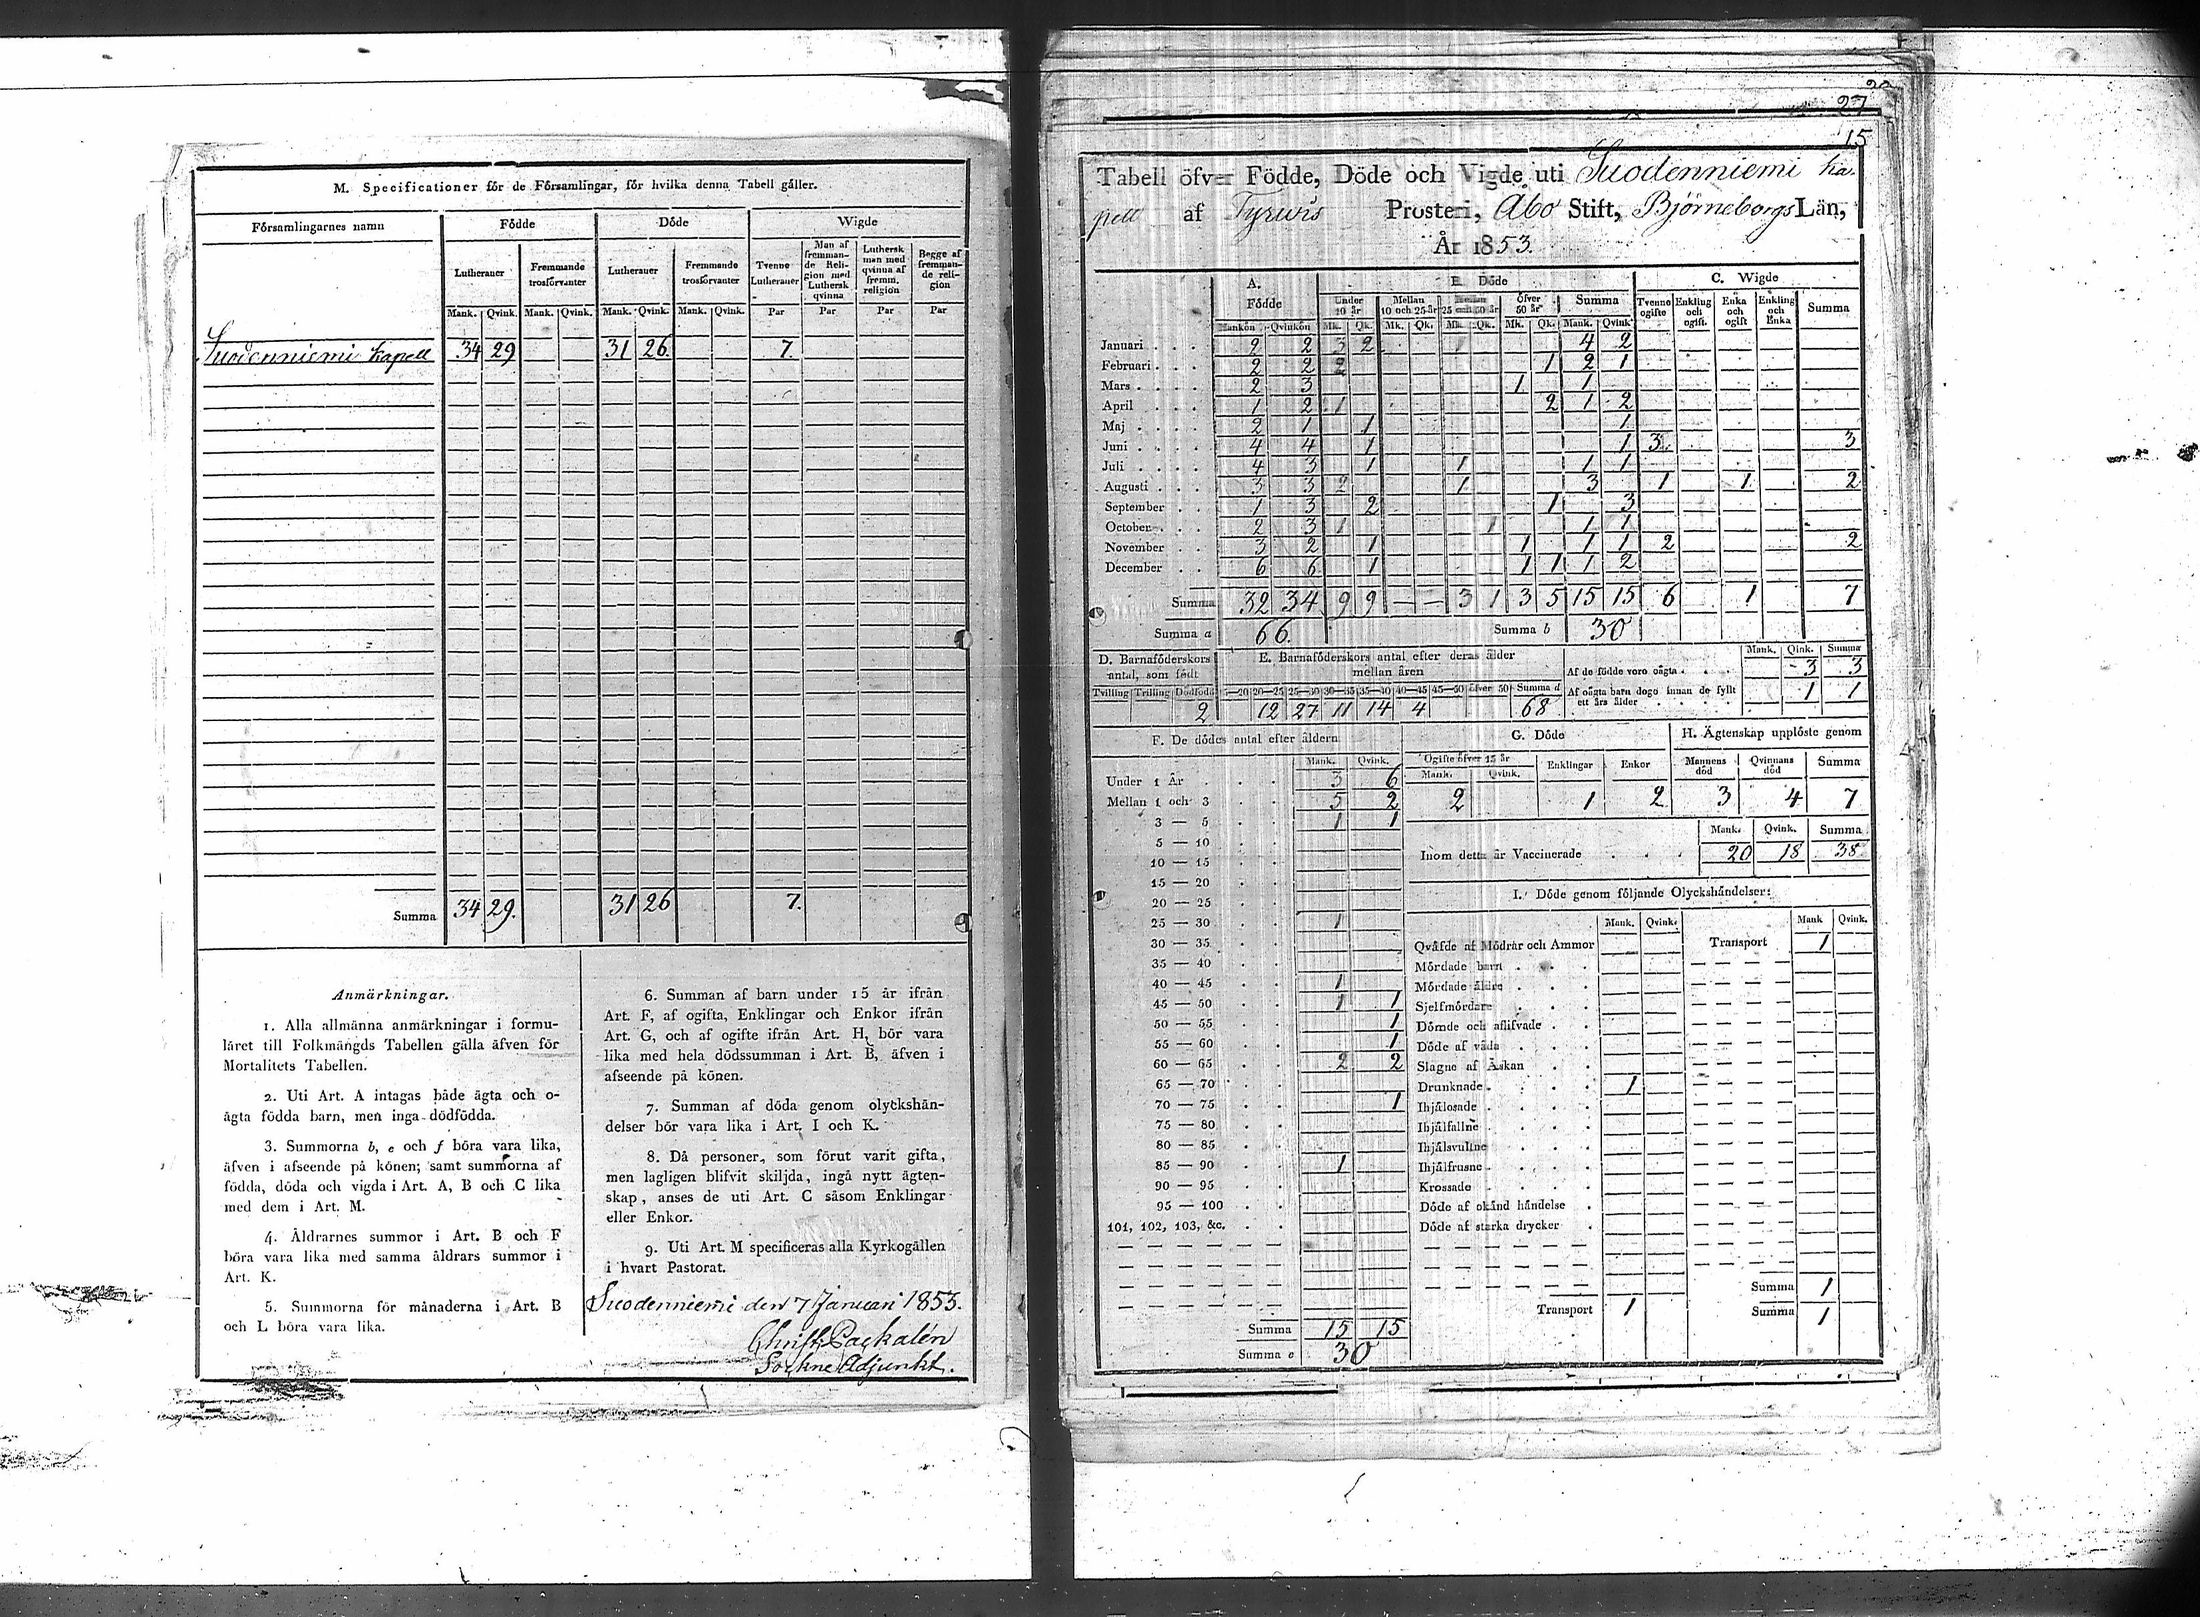 M. Specificationer för de Församlingar, för hvilka denna Tabell gäller.
Församlingarnes namn Födde Döde Wigde
Lutheraner Fremmande trosförvanter Lutheraner Fremmande trosförvanter Tvenne Lutheraner Man af fremmande Religion med Luthersk qvinna Luthersk man med qvinna af fremm. religion Begge af fremmande religion
Mank. Qvink. Mank. Qvink. Mank. Qvink. Mank. Qvink. Par Par Par Par
Suodenniemi kapell 34 29 31 26 7.
Summa 34 29. 31 26 7.
Anmärkningar.
1. Alla allmänna anmärkningar i formu-
läret till Folkmängds Tabellen gälla äfven för
Mortalitets Tabellen.
2. Uti Art. A intagas både ägta och o-
ägta födda barn, men inga dödfödda.
3. Summorna b, e och f böra vara lika,
äfven i afseende på könen; samt summorna af
födda, döda och vigda i Art. A, B och C lika
med dem i Art. M.
4. Åldrarnes summor i Art. B och F
böra vara lika med samma åldrars summor i
Art. K.
5. Summorna för månaderna i Art. B
och L böra vara lika.
6. Summan af barn under 15 år ifrån
Art. F, af ogifta, Enklingar och Enkor ifrån
Art. G, och af ogifte ifrån Art. H, bör vara
lika med hela dödssumman i Art. B, äfven i
afseende på könen.
7. Summan af döda genom olyckshän-
delser bör vara lika i Art. I och K.
8. Då personer, som förut varit gifta,
men lagligen blifvit skiljda, ingå nytt ägten-
skap, anses de uti Art. C såsom Enklingar
eller Enkor.
9. Uti Art. M specificeras alla Kyrkogällen
i hvart Pastorat.
Suodenniemi den 7 Januari 1853.
Christ. Packalén
Sockne Adjunkt.
27
15
Tabell öfver Födde, Döde och Vigde uti Suodenniemi ka-
pell af Tyrvis Prosteri, Åbo Stift, Björneborgs Län,
År 1853.
A. Födde B. Döde C. Wigde
Under 10 år Mellan 10 och 25 år Mellan 25 och 50 år Öfver 50 år Summa Tvenne ogifte Enkling och ogift. Enka och ogift Enkling och Enka Summa
Mankön Qvinkön Mk. Qk. Mk. Qk. Mk. Qk. Mk. Qk. Mank. Qvink
Januari 2 2 3 2 1 4 2
Februari 2 2 2 1 2 1
Mars 2 3 1 1
April 1 2 1 2 1 2
Maj 2 1 1 1
Juni 4 4 1 1 3 3
Juli 4 3 1 1 1 1
Augusti 3 3 2 1 3 1 1 2
September 1 3 2 1 3
October 2 3 1 1 1 1
November 3 2 1 1 1 1 2 2
December 6 6 1 1 1 1 2
Summa 32 34 9 9 — — 3 1 3 5 15 15 6 1 7
Summa a 66. Summa b 30
D. Barnaföderskors antal, som födt E. Barnaföderskors antal efter deras ålder mellan åren
Mank. Qink. Summa
Af de födde voro oägta 3 3
Af oägta barn dogo innan de fyllt ett års ålder 1 1
Tvilling Trilling Dödfödd 15—20 20—25 25—30 30—35 35—40 40—45 45—50 öfver 50 Summa d
2 12 27 11 14 4 68
F. De dödes antal efter åldern G. Döde H. Ägtenskap upplöste genom
Mank. Qvink. Ogifte öfver 15 år Mank. Qvink. Enklingar Enkor Mannens död Qvinnans död Summa
2 1 2 3 4 7
Under 1 År 3 6
Mellan 1 och 3 5 2
3 — 5 1 1
5 — 10
10 — 15
15 — 20
20 — 25
25 — 30 1
30 — 35
35 — 40
40 — 45 1
45 — 50 1 1
50 — 55 1
55 — 60 1
60 — 65 2 2
65 — 70
70 — 75 1
75 — 80
80 — 85
85 — 90 1
90 — 95
95 — 100
101, 102, 103, &c.
Summa 15 15
Summa e 30
Mank. Qvink. Summa
Inom detta år Vaccinerade 20 18 38
I. Döde genom följande Olyckshändelser:
Mank. Qvink. Mank Qvink.
Qväfde af Mödrar och Ammor Transport 1
Mördade barn
Mördade äldre
Sjelfmördare
Dömde och aflifvade
Döde af våda
Slagne af Åskan
Drunknade 1
Ihjälosade
Ihjälfallne
Ihjälsvultne
Ihjälfrusne
Krossade
Döde af okänd händelse
Döde af starka drycker
Summa 1
Transport 1 Summa 1